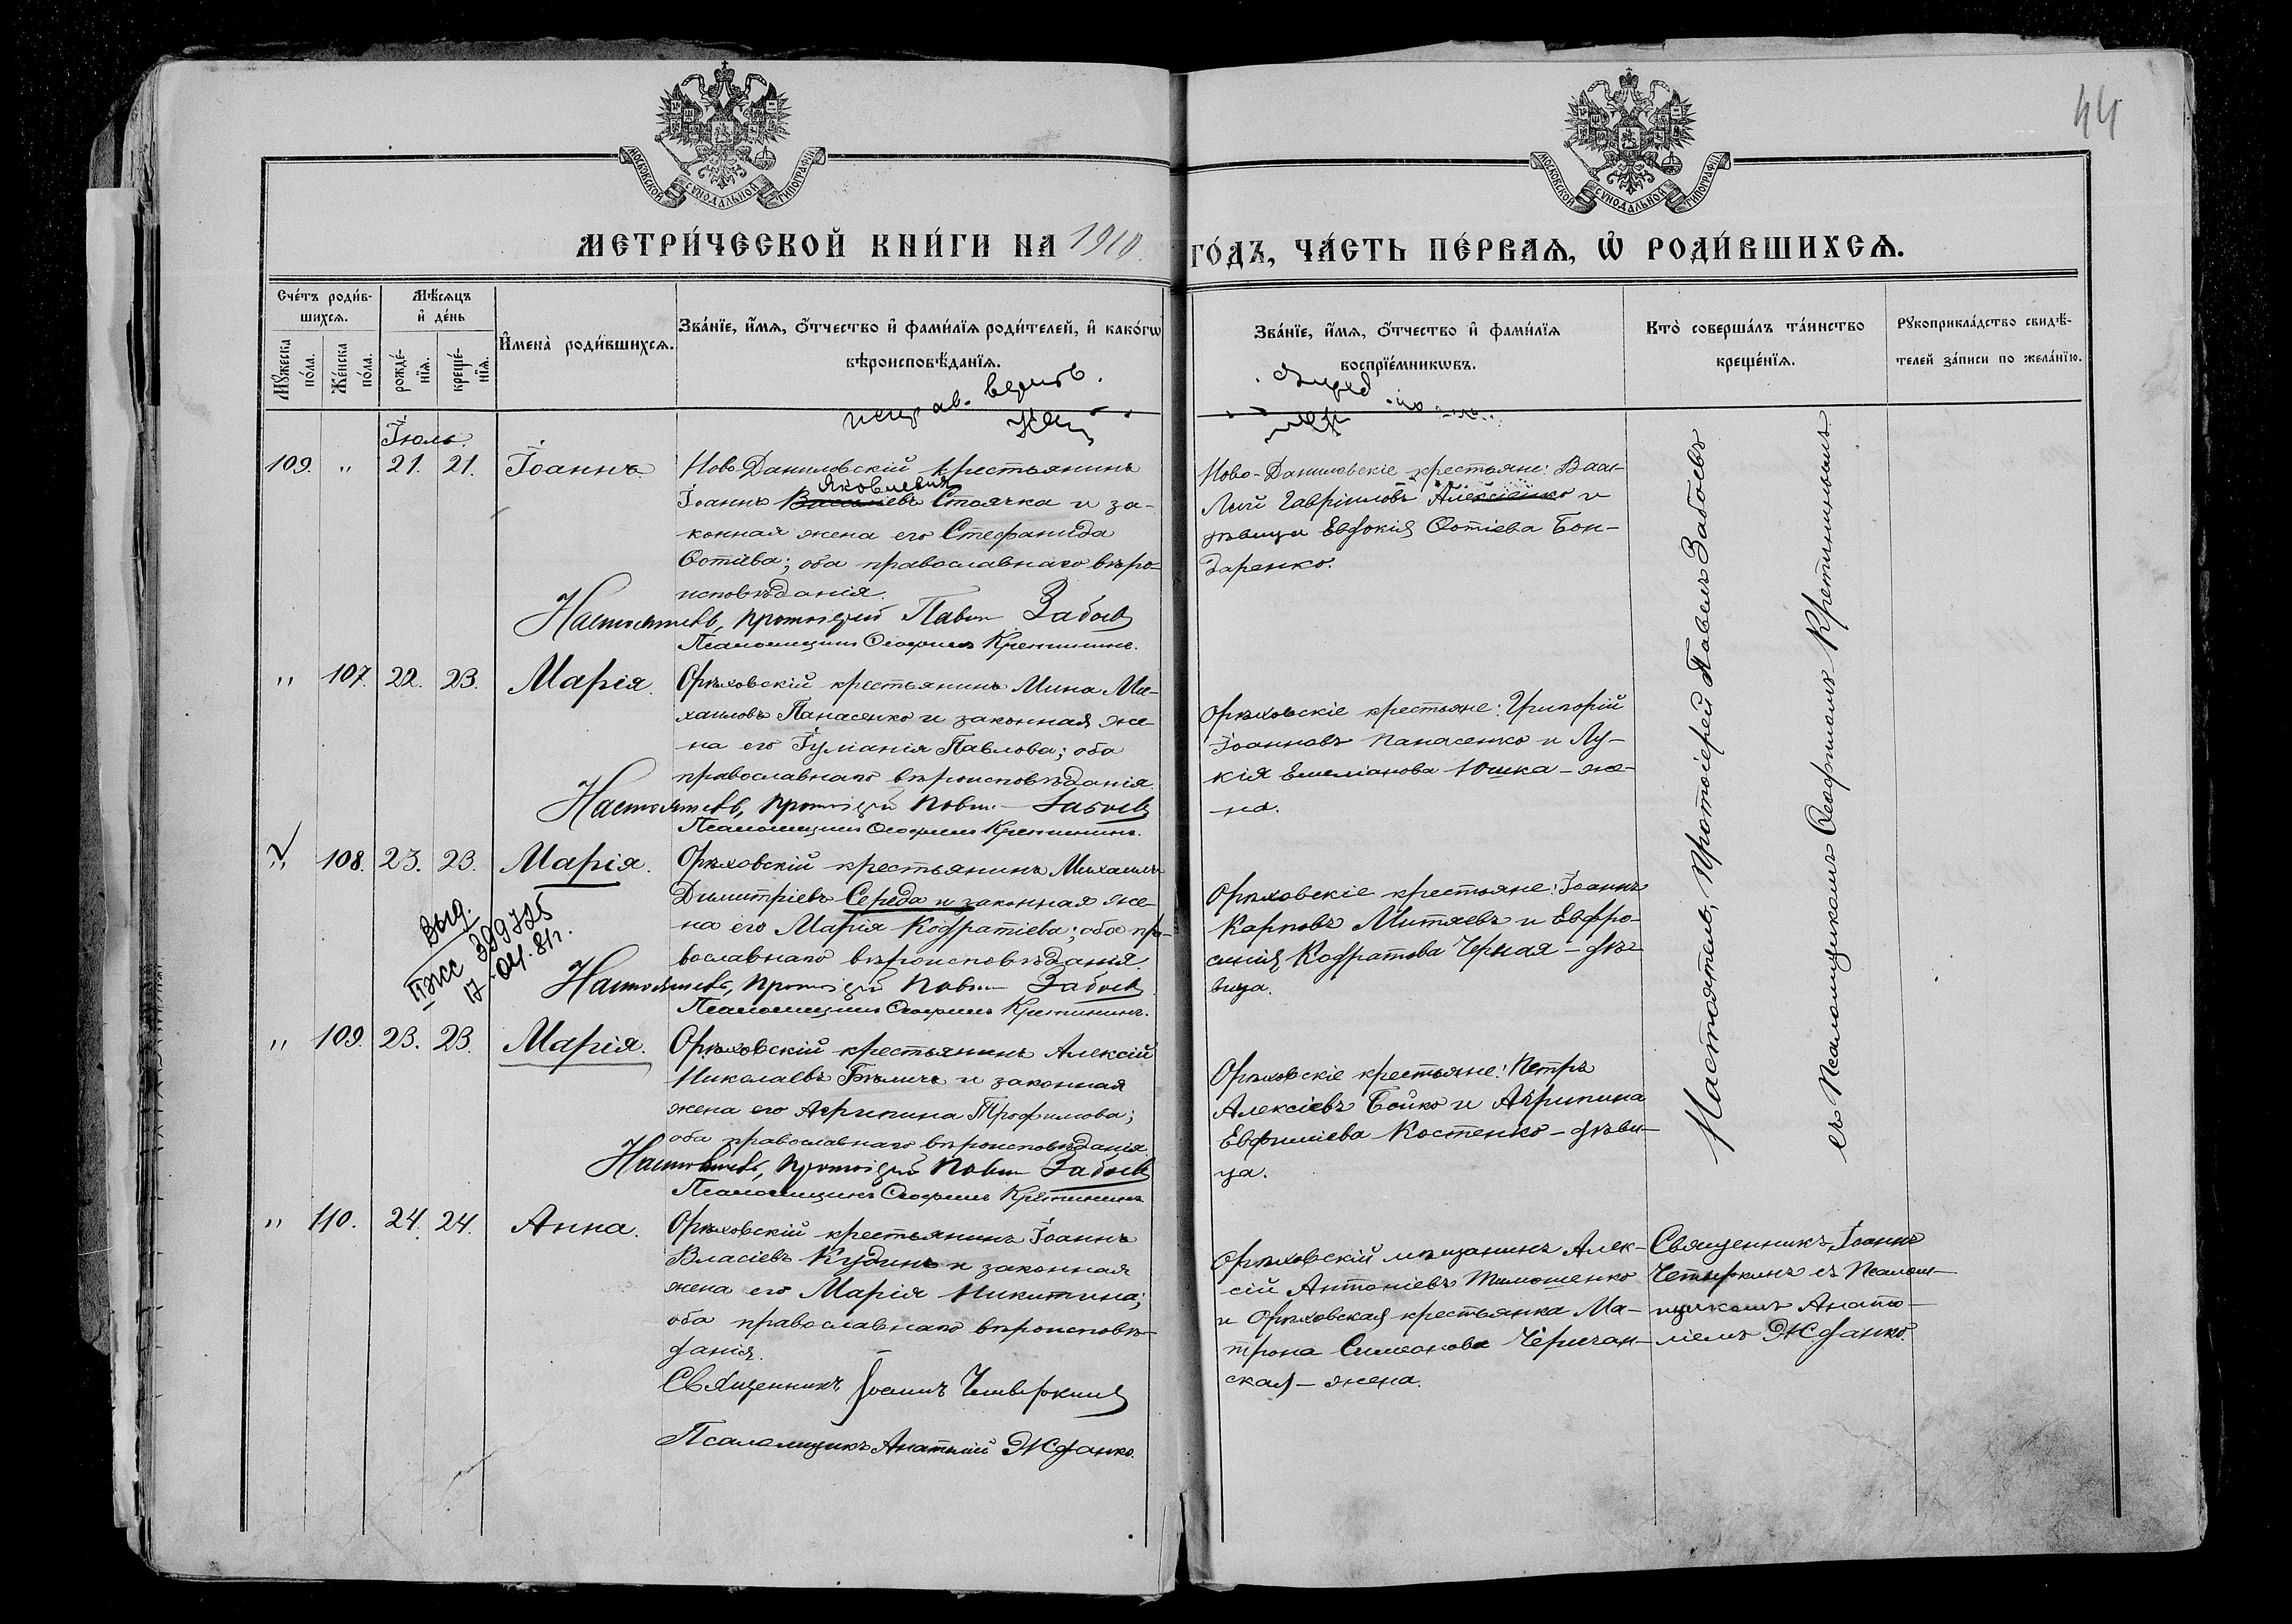 44
МОСКОВСКОЙ СѴНОДАЛЬНОЙ ТИПОГРАФІИ
МОСКОВСКОЙ СѴНОДАЛЬНОЙ ТИПОГРАФІИ
МЕТРИ́ЧЕСКОЙ КНИ́ГИ НА 1910 ГО́ДЪ, ЧА́СТЬ ПЕ́РВАѦ, Ѡ҆ РОДИ́ВШИХСѦ.
Сче́тъ роди́в-
шихсѧ.
Мѣ́сѧцъ
и҆ де́нь
Мꙋ́жеска
по́ла.
Же́нска
по́ла.
рожде́-
нїѧ.
креще́-
нїѧ.
И҆мена̀ роди́вшихсѧ.
Зва́нїе, и҆́мѧ, ѻ҆́тчество и҆ фами́лїѧ роди́телей, и҆ како́гѡ
вѣроисповѣ́данїѧ.
Зва́нїе, и҆́мѧ, ѻ҆́тчество и҆ фами́лїѧ
воспрїе́мникѡвъ.
Кто̀ соверша́лъ та́инство
креще́нїѧ.
Рꙋкоприкла́дство свидѣ́-
телей за́писи по жела́нїю.
Іюль.
109. " 21. 21. Іоаннъ
Ново-Даниловскій крестьянинъ
Яковлевич
Іоаннъ Василіевъ Стоячка и за-
конная жена его Стефанида
Фотіева; оба православнаго вѣро-
исповѣданія.
Настоятель, протоіерей Павелъ Забоев
Псаломщикъ Ѳеофилъ Кретининъ.
Ново-Даниловскіе крестьяне: Васи-
лій Гавріиловъ Алексіенко и
дѣвица Евдокія Фотіева Бон-
даренко.
" 107. 22. 23. Марія.
Орѣховскій крестьянинъ Мина Ми-
хаиловъ Панасенко и законная же-
на его Іуліанія Павлова; оба
православнаго вѣроисповѣданія.
Настоятель, протоіерей Павелъ Забоев
Псаломщикъ Ѳеофилъ Кретининъ.
Орѣховскіе крестьяне: Григорій
Іоанновъ Панасенко и Лу-
кія Емеліанова Юшка - же-
на.
" 108. 23. 23. Марія.
Орѣховскій крестьянинъ Михаилъ
Димитріевъ Середа и законная же-
на его Марія Кодратіева; оба пра-
вославнаго вѣроисповѣданія.
Настоятель, протоіерей Павелъ Забоев
Псаломщикъ Ѳеофилъ Кретининъ.
Выд.
II ЖС 399725
17.04.81г.
Орѣховскіе крестьяне: Іоаннъ
Карповъ Митяевъ и Евфро-
синія Кодратова Черная - дѣ-
вица.
" 109. 23. 23. Марія.
Орѣховскій крестьянинъ Алексій
Николаевъ Бѣличъ и законная
жена его Агрипина Трофимова;
оба православнаго вѣроисповѣданія.
Настоятель, протоіерей Павелъ Забоев
Псаломщикъ Ѳеофилъ Кретининъ
Орѣховскіе крестьяне: Петръ
Алексіевъ Бойко и Агрипина
Евфиміева Костенко - дѣви-
ца.
" 110. 24. 24. Анна.
Орѣховскій крестьянинъ Іоаннъ
Власіевъ Кудинъ и законная
жена его Марія Никитина;
оба православнаго вѣроисповѣ-
данія.
Священникъ Іоаннъ Четыркинъ
Псаломщикъ Анатолій Жданко.
Орѣховскій мѣщанинъ Алек-
сій Антоніевъ Тимошенко
и Орѣховская крестьянка Ма-
трона Симеонова Черičан-
ская - жена.
Настоятель, Протоіерей Павелъ Забоевъ
съ Псаломщикомъ Ѳеофиломъ Кретининымъ.
Священникъ Іоаннъ
Четыркинъ съ Псалом-
щикомъ Анато-
ліемъ Жданко.